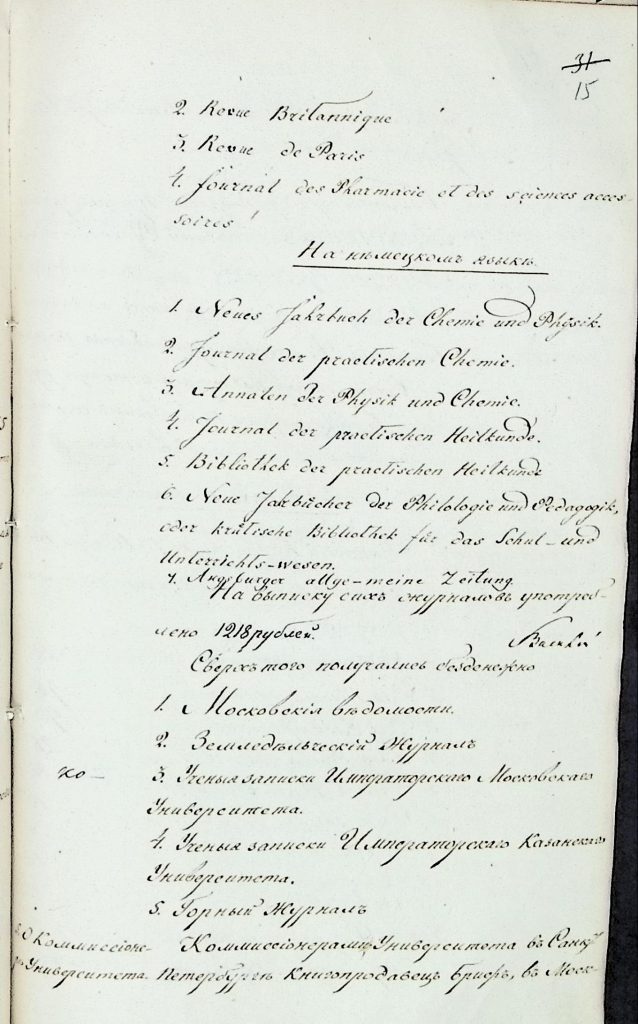 31
15
2. Revue Britannique
3. Revue de Paris
4. Journal des Pharmacie et des sciences acces-
soires
На нѣмецкомъ языкѣ.
1. Neues Jahrbuch der Chemie und Physik.
2. Journal der practischen Chemie.
3. Annalen der Physik und Chemie.
4. Journal der practischen Heilkunde.
5. Bibliothek der practischen Heilkunde
6. Neue Jahrbücher der Philologie und Pedagogik,
oder kritische Bibliothek für das Schul-und
Unterrichts-wesen.
7. Augsburger allge-meine Zeitung.
На выписку сихъ журналовъ употреб-
лено 1218 рублей.
Сверхъ того получались безденежно
1. Московскія вѣдомости.
2. Земледѣльческій Журналъ
3. Ученыя записки Императорскаго Московскаго
Университета.
4. Ученыя записки Императорскаго Казанскаго
Университета.
5. Горный Журналъ
О Коммиссіоне- Коммиссіонерами Университета въ Санкт
Университета. Петербургѣ книгопродавецъ Брифъ, въ Моск-